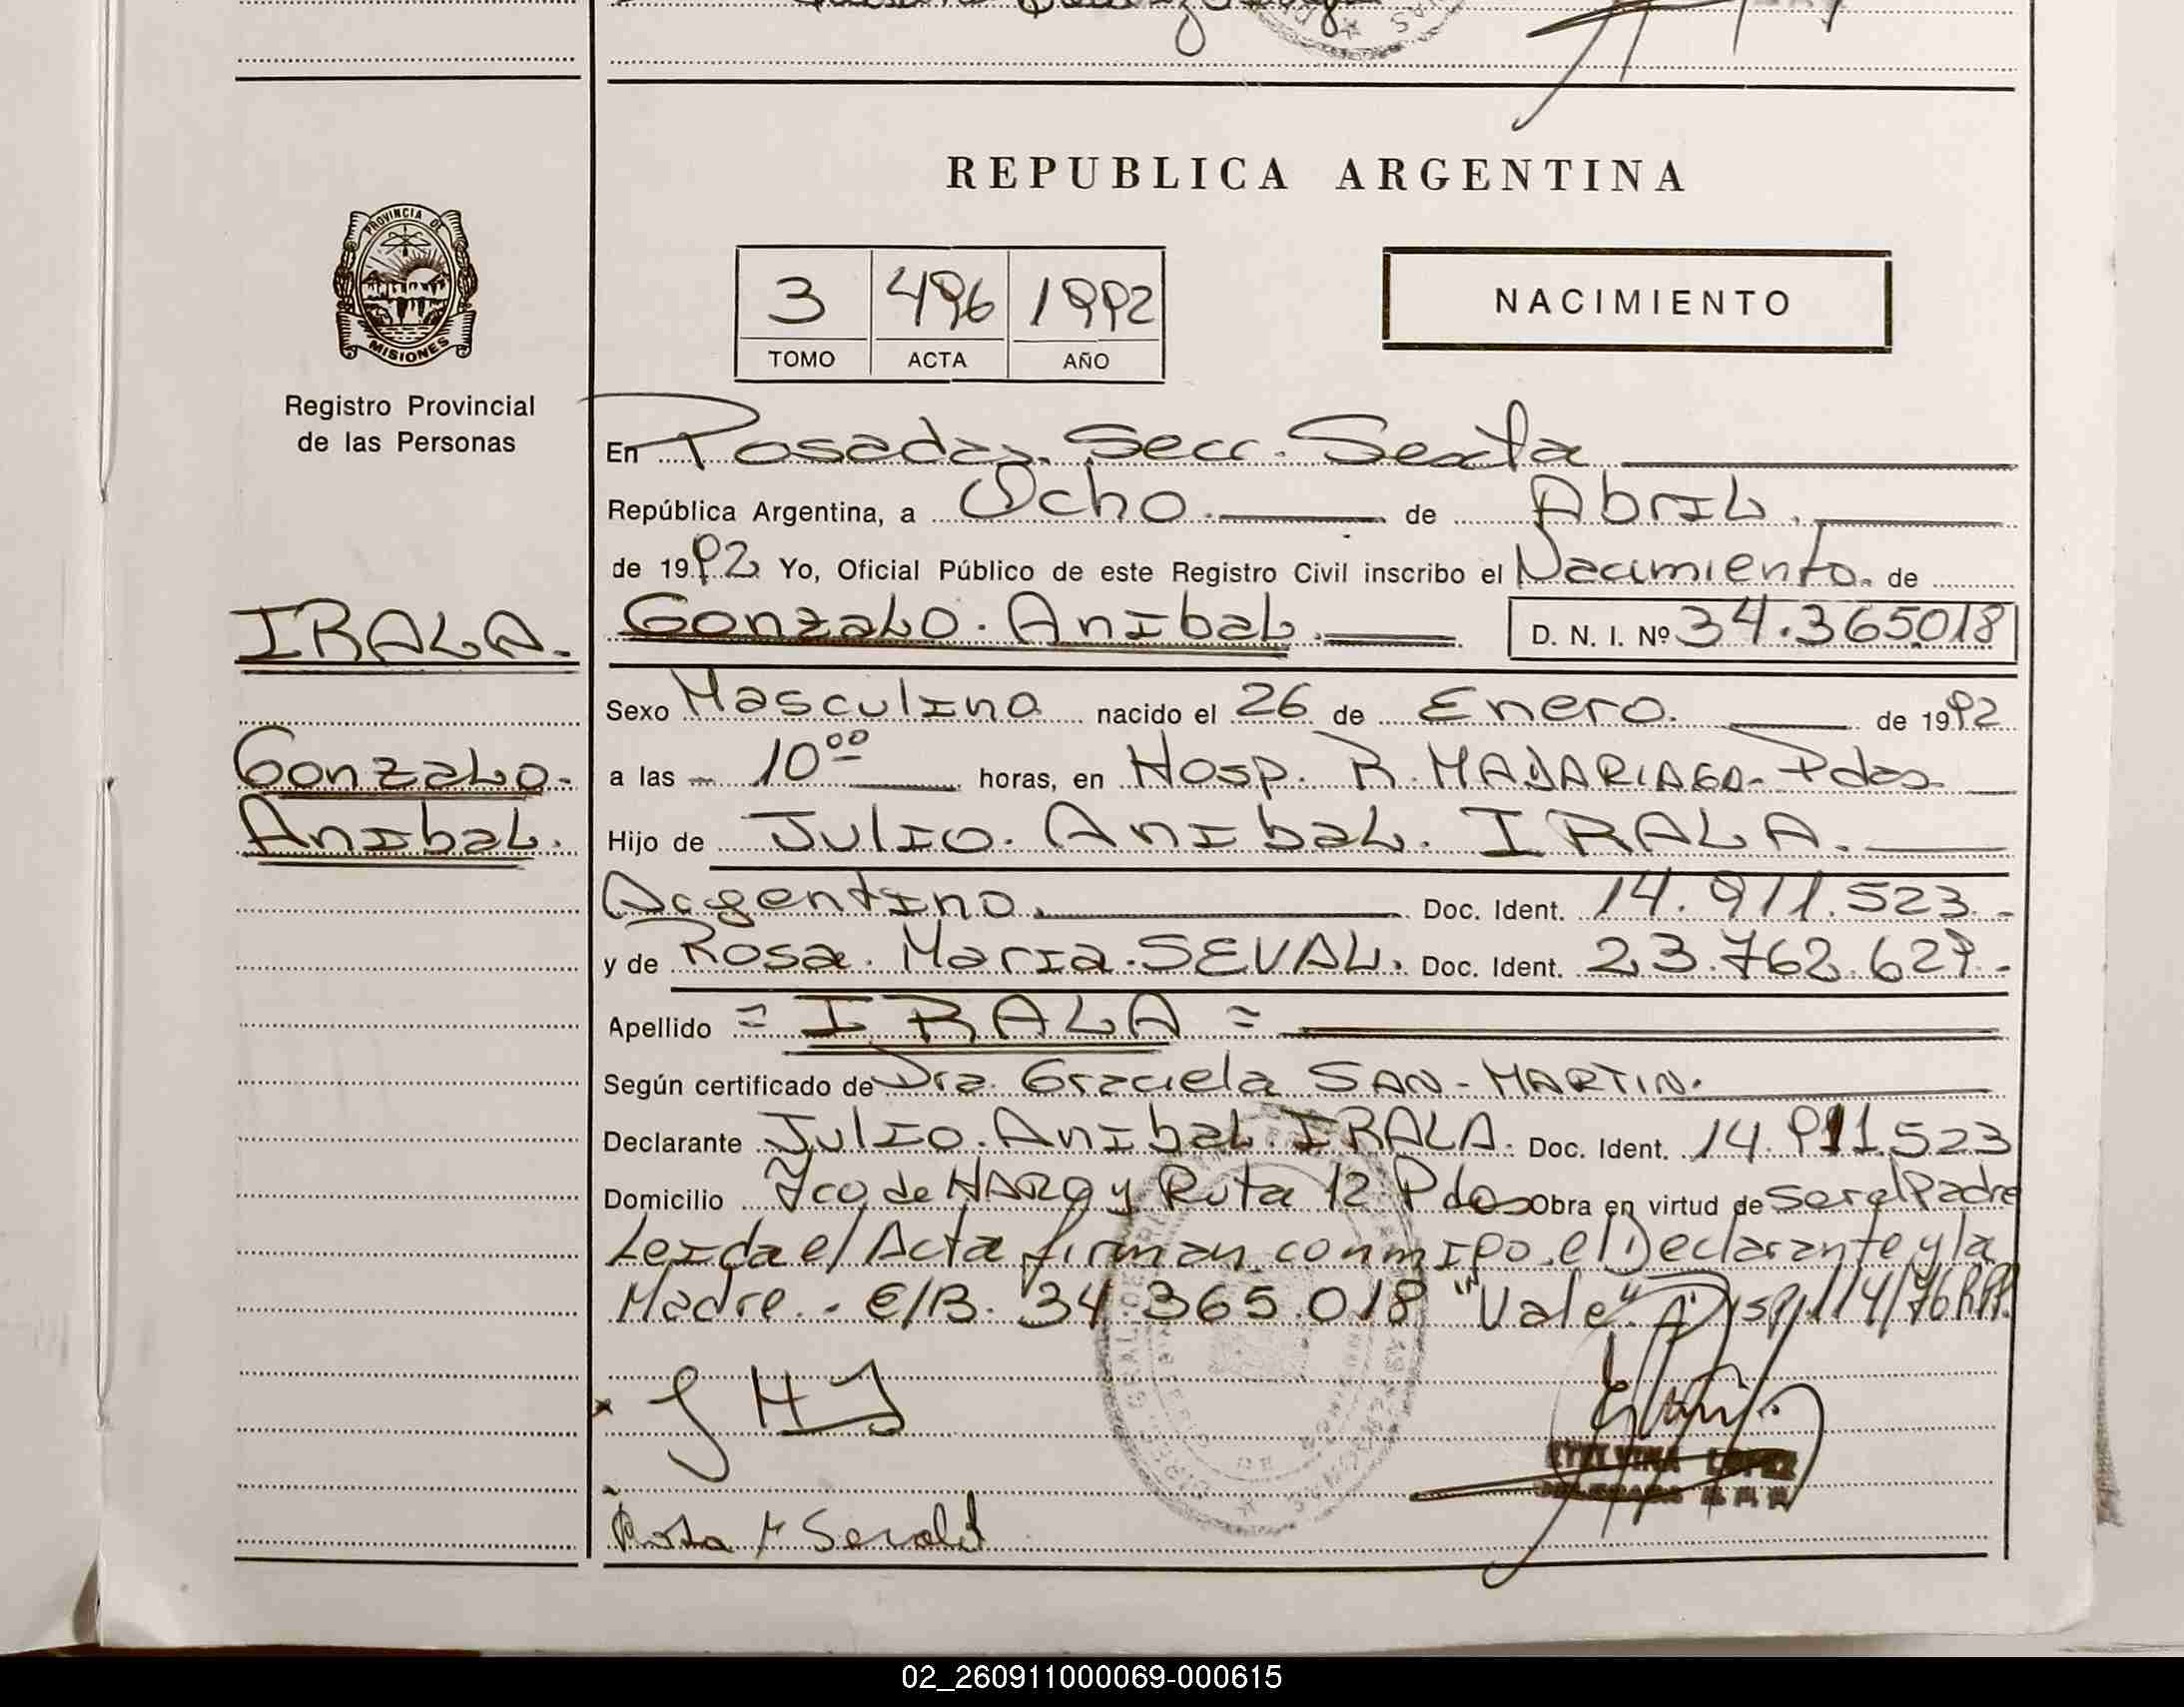 REPUBLICA ARGENTINA
PROVINCIA DE
MISIONES
Registro Provincial
de las Personas
3 496 1992
TOMO ACTA AÑO
NACIMIENTO
En Posadas. Secc. Sexta
República Argentina, a Ocho. de Abril.
de 1992 Yo, Oficial Público de este Registro Civil inscribo el Nacimiento. de
IRALA.
Gonzalo. Anibal. D. N. I. Nº 34.365018
Sexo Masculino nacido el 26 de Enero. de 1992
Gonzalo.
Anibal.
a las 10⁰⁰ horas, en Hosp. R. MADARIAGA. Pdas
Hijo de Julio. Anibal. IRALA.
Argentino. Doc. Ident. 14.911.523.
y de Rosa. Maria. SEVAL. Doc. Ident. 23.762.629.
Apellido = IRALA =
Según certificado de Dra. Graciela SAN-MARTIN.
Declarante Julio. Anibal. IRALA. Doc. Ident. 14.911.523
Domicilio Fco de HARO y Ruta 12 Pdas Obra en virtud de Ser el Padre
Leida el Acta firman conmigo el Declarante y la
Madre. - E/B. 34.365.018 "Vale". Disp. 114/76
Rosa M
ETELVINA LOPEZ
02_260911000069-000615